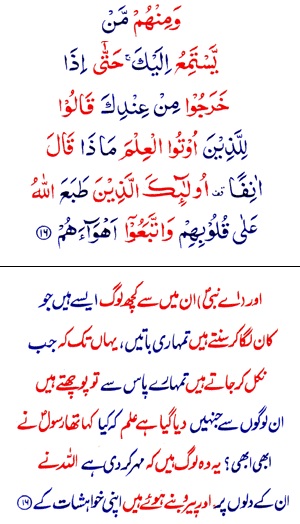 وَمِنْهُمْ مَّنْ
يَّسْتَمِعُ اِلَيْكَ ۚ حَتّٰۤى اِذَا
خَرَجُوْا مِنْ عِنْدِكَ قَالُوْا
لِلَّذِيْنَ اُوْتُوا الْعِلْمَ مَاذَا قَالَ
اٰنِفًا ۫ اُولٰٓئِكَ الَّذِيْنَ طَبَعَ اللّٰهُ
عَلٰى قُلُوْبِهِمْ وَاتَّبَعُوْۤا اَهْوَآءَهُمْ ﴿۱۶﴾
اور (اے نبیؐ) ان میں سے کچھ لوگ ایسے ہیں جو
کان لگا کر سنتے ہیں تمہاری باتیں، یہاں تک کہ جب
نکل کر جاتے ہیں تمہارے پاس سے تو پوچھتے ہیں
ان لوگوں سے جنہیں دیا گیا ہے علم کہ کیا کہا تھا رسولؐ نے
ابھی ابھی؟ یہ وہ لوگ ہیں کہ مہر کر دی ہے اللہ نے
ان کے دلوں پر۔ اور پیرو بنے ہوئے ہیں اپنی خواہشات کے ﴿۱۶﴾